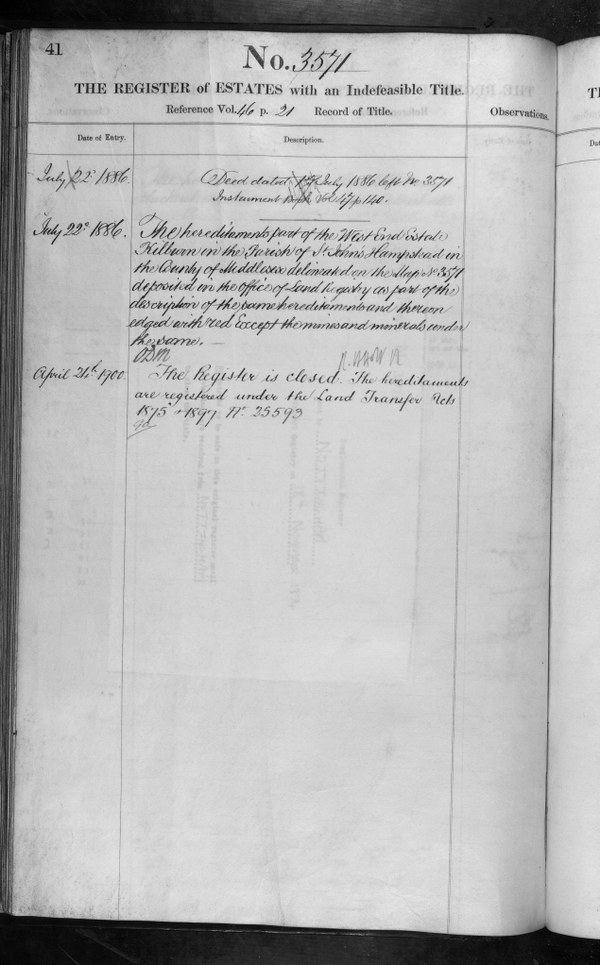 41
No. 3571
THE REGISTER of ESTATES with an Indefeasible Title.
Reference Vol. 46 p. 21 Record of Title.
Observations.
Date of Entry.
Description.
July 22d 1886.
Deed dated July 1886 left No 3571
Instrument Vol. 17 p 140.
July 22d 1886.
The hereditaments part of the West End Estate
Kilburn in the Parish of St. John's Hampstead in
the County of Middlesex delineated on the Map No. 3571
deposited in the office of Land Registry as part of the
description of the same hereditaments and thereon
edged with red Except the mines and minerals under
the same.
April 24th 1900.
The Register is closed. The hereditaments
are registered under the Land Transfer Acts
1875 & 1897 No. 25593